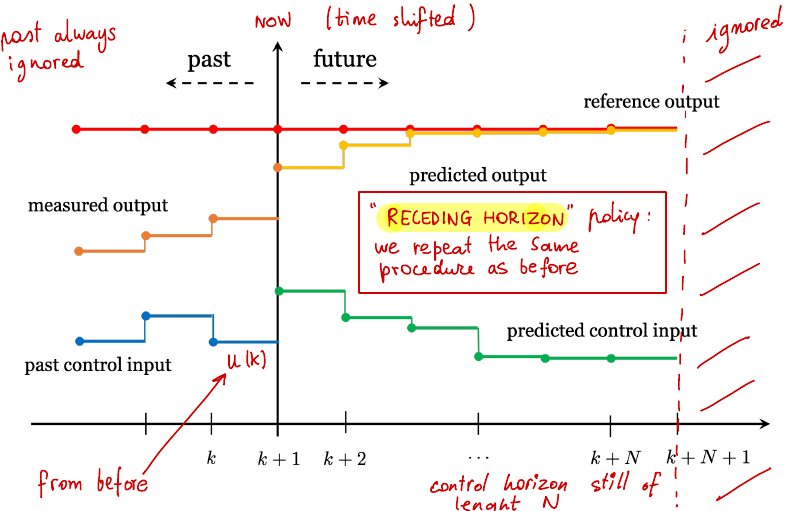 NOW (time shifted)
past always
ignored
ignored
past
future
reference output
predicted output
measured output
"RECEDING HORIZON" policy:
we repeat the same
procedure as before
predicted control input
past control input
u(k)
k
k + 1
k + 2
...
k + N
k + N + 1
from before
control horizon still of
lenght N